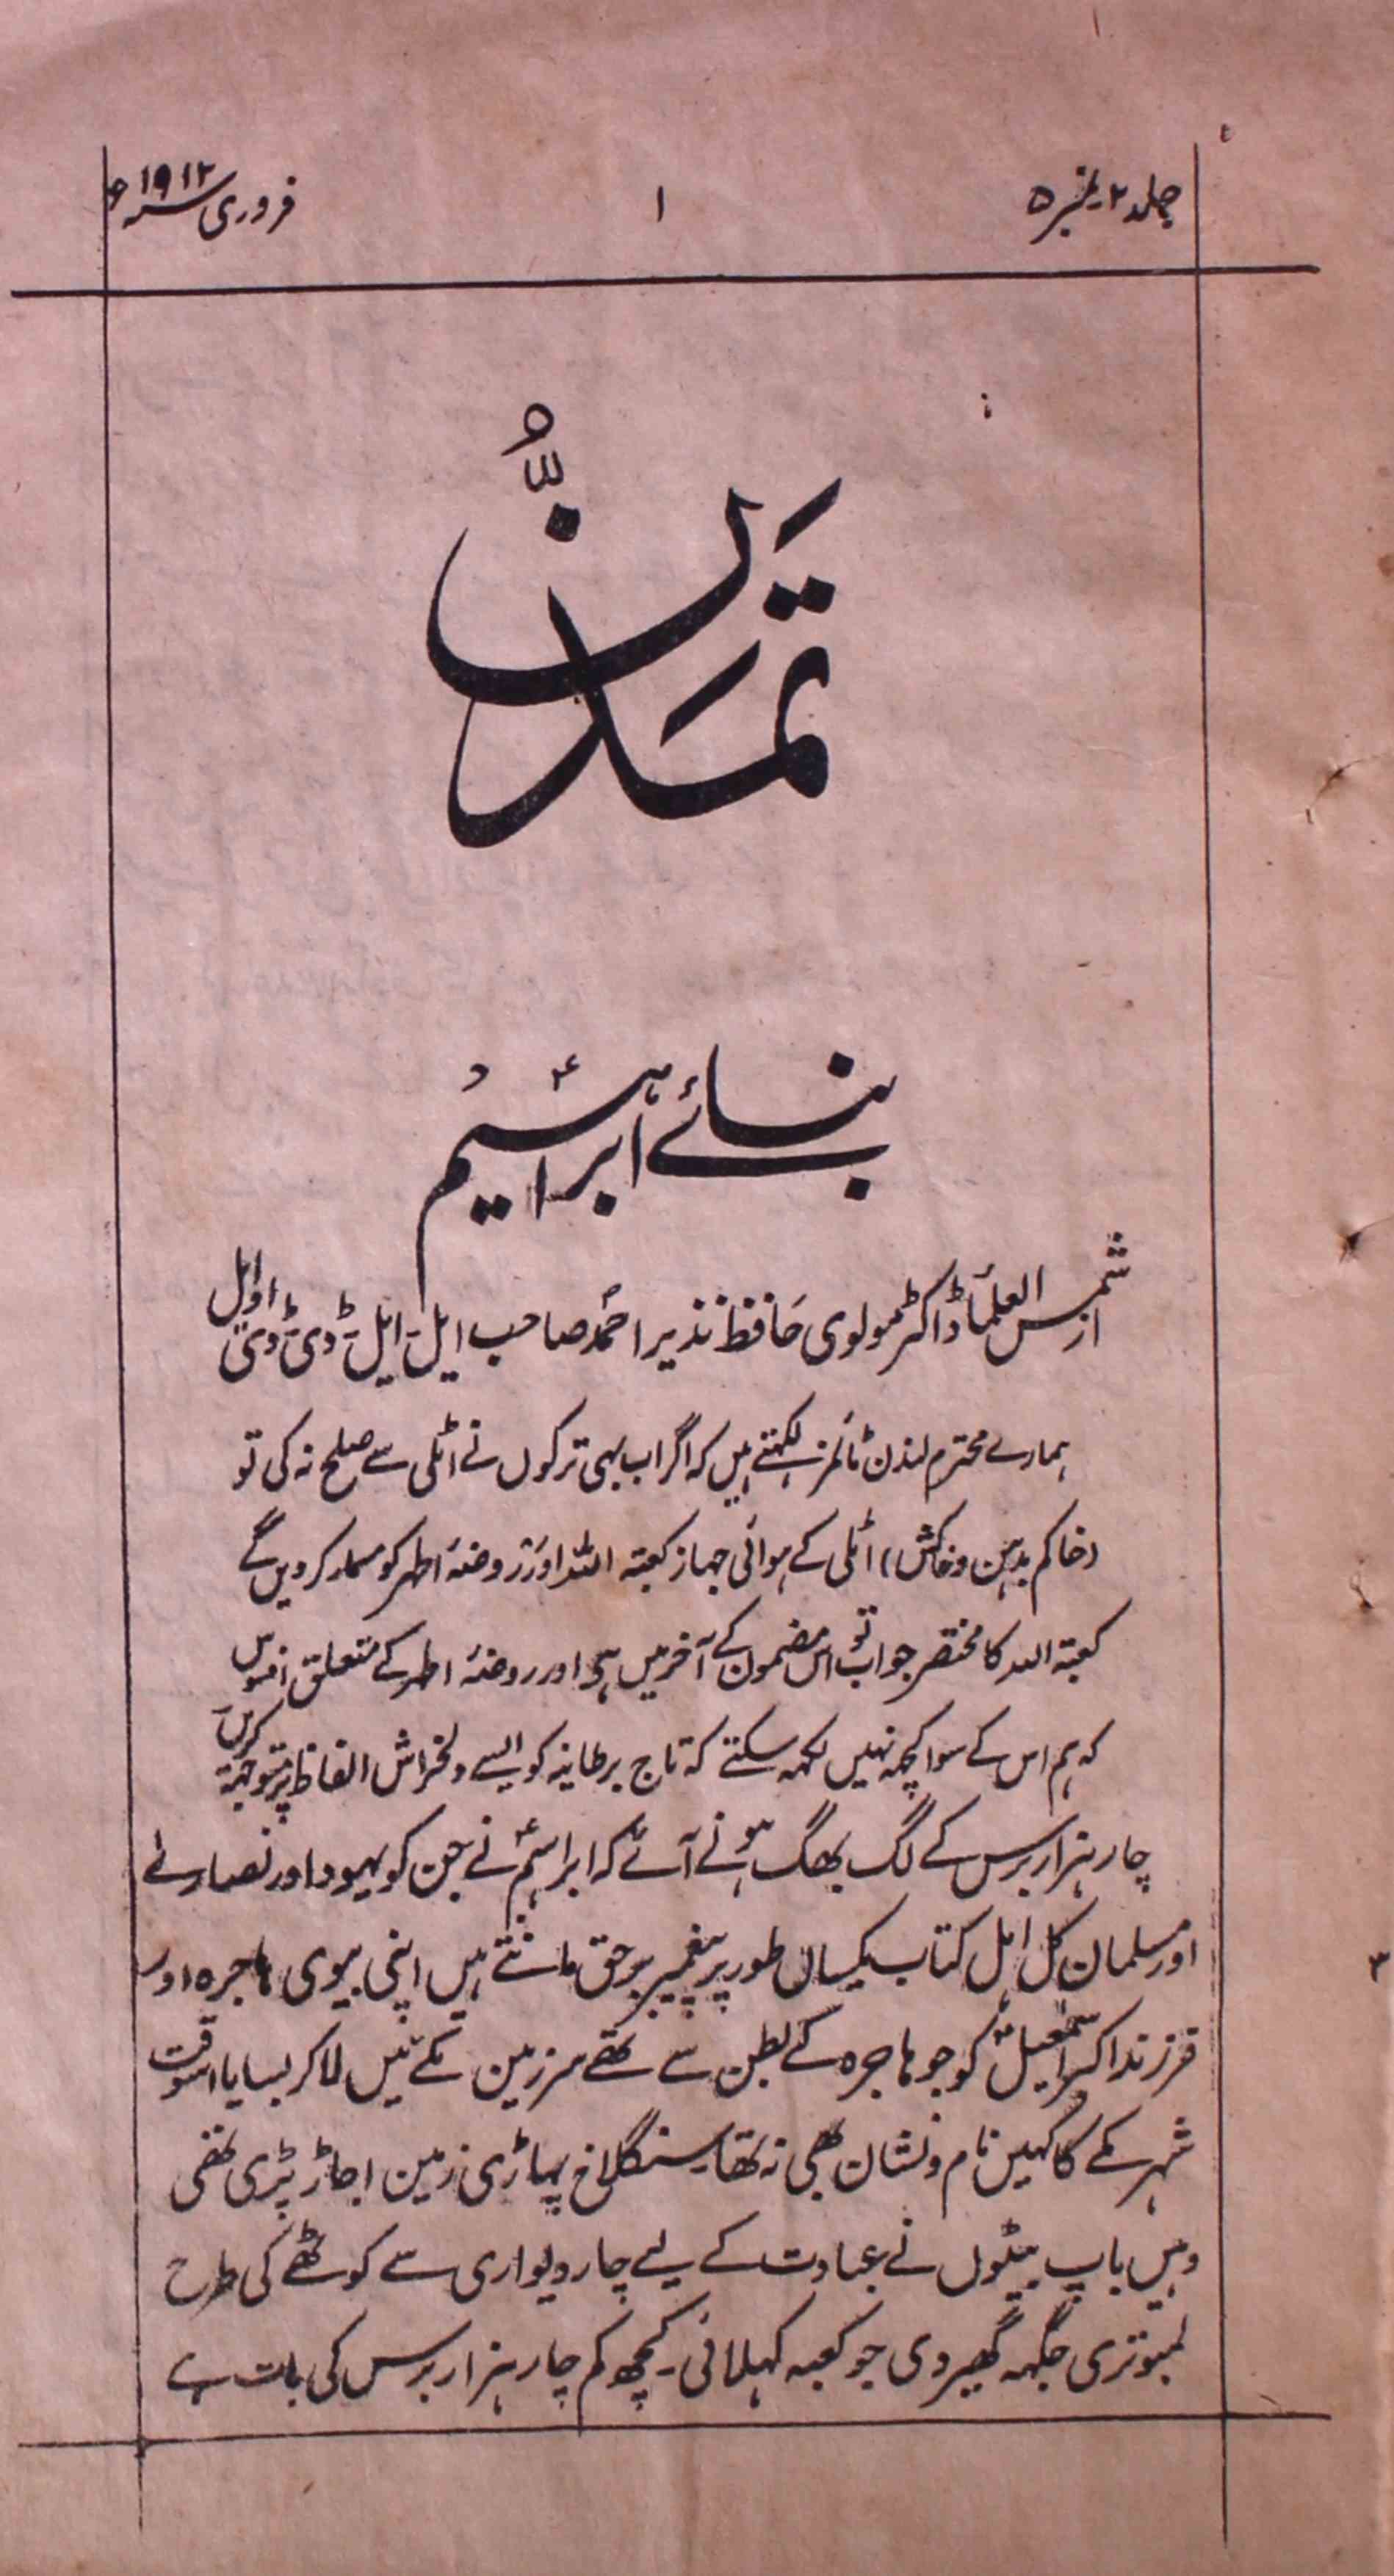 جلد ۲ نمبر ۵
۱
فروری سنہ ۱۹۱۲ء
تمدن
بنائے ابراہیمؑ
از شمس العلما ڈاکٹر مولوی حافظ نذیر احمد صاحب ایل ایل ڈی ڈی او ایل
ہمارے محترم لندن ٹائمز لکھتے ہیں کہ اگر اب بھی ترکوں نے اٹلی سے صلح نہ کی تو
(خاکم بدہن و خاکش) اٹلی کے ہوائی جہاز کعبتہ اللہ اور روضۂ اطہر کو مسمار کر دیں گے
کعبتہ اللہ کا مختصر جواب تو اس مضمون کے آخر میں ہی اور روضۂ اطہر کے متعلق افسوس
کہ ہم اس کے سوا کچہہ نہیں لکہہ سکتے کہ تاج برطانیہ کو ایسے دلخراش الفاظ پر متوجہ کریں
چار ہزار برس کے لگ بھگ ہونے آئے کہ ابراہیمؑ نے جن کو یہود اور نصارے
اور مسلمان کل اہل کتاب یکساں طور پر پیغمبر برحق مانتے ہیں اپنی بیوی ہاجرہ اور
فرزند اکبر اسمٰعیلؑ کو جو ہاجرہ کے بطن سے تھے سرزمین مکے میں لا کر بسایا اسوقت
شہر مکے کا کہیں نام و نشان بھی نہ تھا سنگلاخ پہاڑی زمین اجاڑ پڑی تھی
وہیں باپ بیٹوں نے عبادت کے لیے چار دیواری سے کوٹھے کی طرح
لمبوتری جگہہ گھیر دی جو کعبہ کہلائی۔ کچھ کم چار ہزار برس کی بات ہے